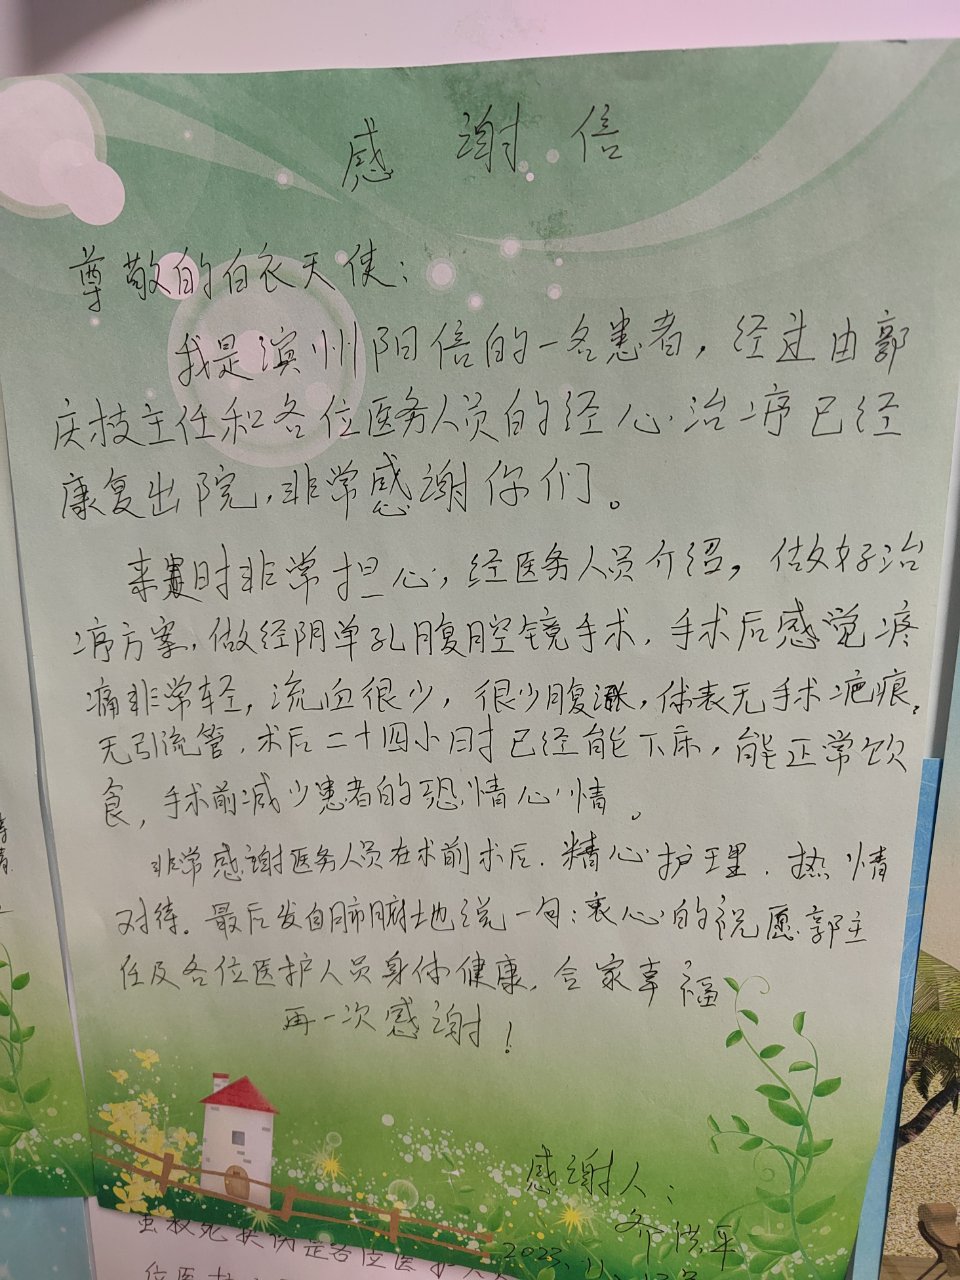 感谢信
尊敬的白衣天使：
我是滨州阳信的一名患者，经过由郭
庆枝主任和各位医务人员的经心治疗已经
康复出院，非常感谢你们。
来时非常担心，经医务人员介绍，做好治
疗方案，做经阴单孔腹腔镜手术，手术后感觉疼
痛非常轻，流血很少，很少腹涨，体表无手术疤痕，
无引流管，术后二十四小时已经能下床，能正常饮
食，手术前减少患者的恐情心情。
非常感谢医务人员在术前术后，精心护理，热情
对待。最后发自肺腑地说一句：衷心的祝愿郭主
任及各位医护人员身体健康，合家幸福
再一次感谢！
感谢人：
洪平
2023.11.
各位医护人
位医